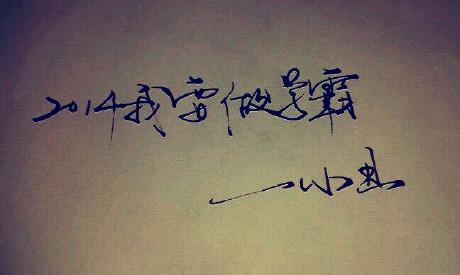 2014我要做学霸
—小虫